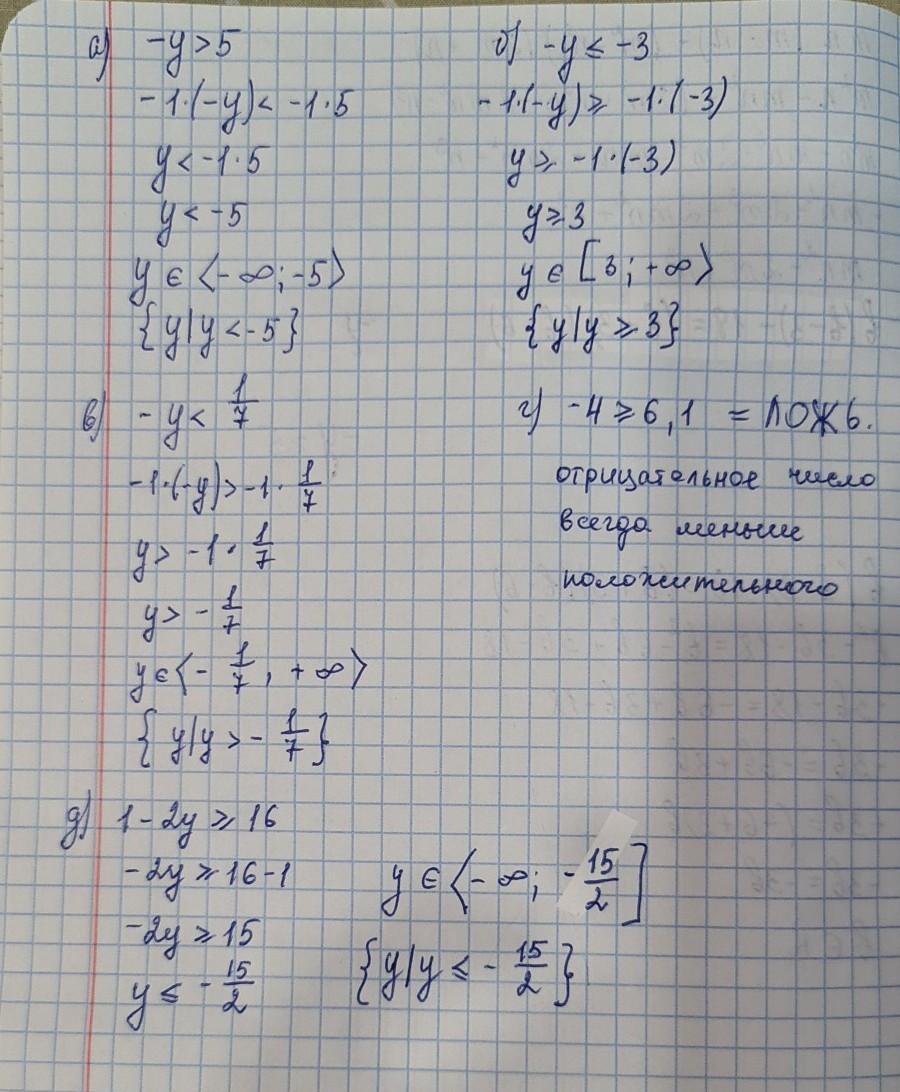 а) -y > 5
-1·(-y) < -1·5
y < -1·5
y < -5
y ∈ ⟨-∞; -5⟩
{y|y < -5}
б) -y ≤ -3
-1·(-y) ≥ -1·(-3)
y ≥ -1·(-3)
y ≥ 3
y ∈ [3; +∞⟩
{y|y ≥ 3}
в) -y < 1/7
-1·(-y) > -1·1/7
y > -1·1/7
y > -1/7
y ∈ ⟨-1/7, +∞⟩
{y|y > -1/7}
г) -4 ≥ 6,1 = ЛОЖЬ.
отрицательное число
всегда меньше
положительного
д) 1 - 2y ≥ 16
-2y ≥ 16-1
-2y ≥ 15
y ≤ -15/2
y ∈ ⟨-∞; -15/2]
{y|y ≤ -15/2}